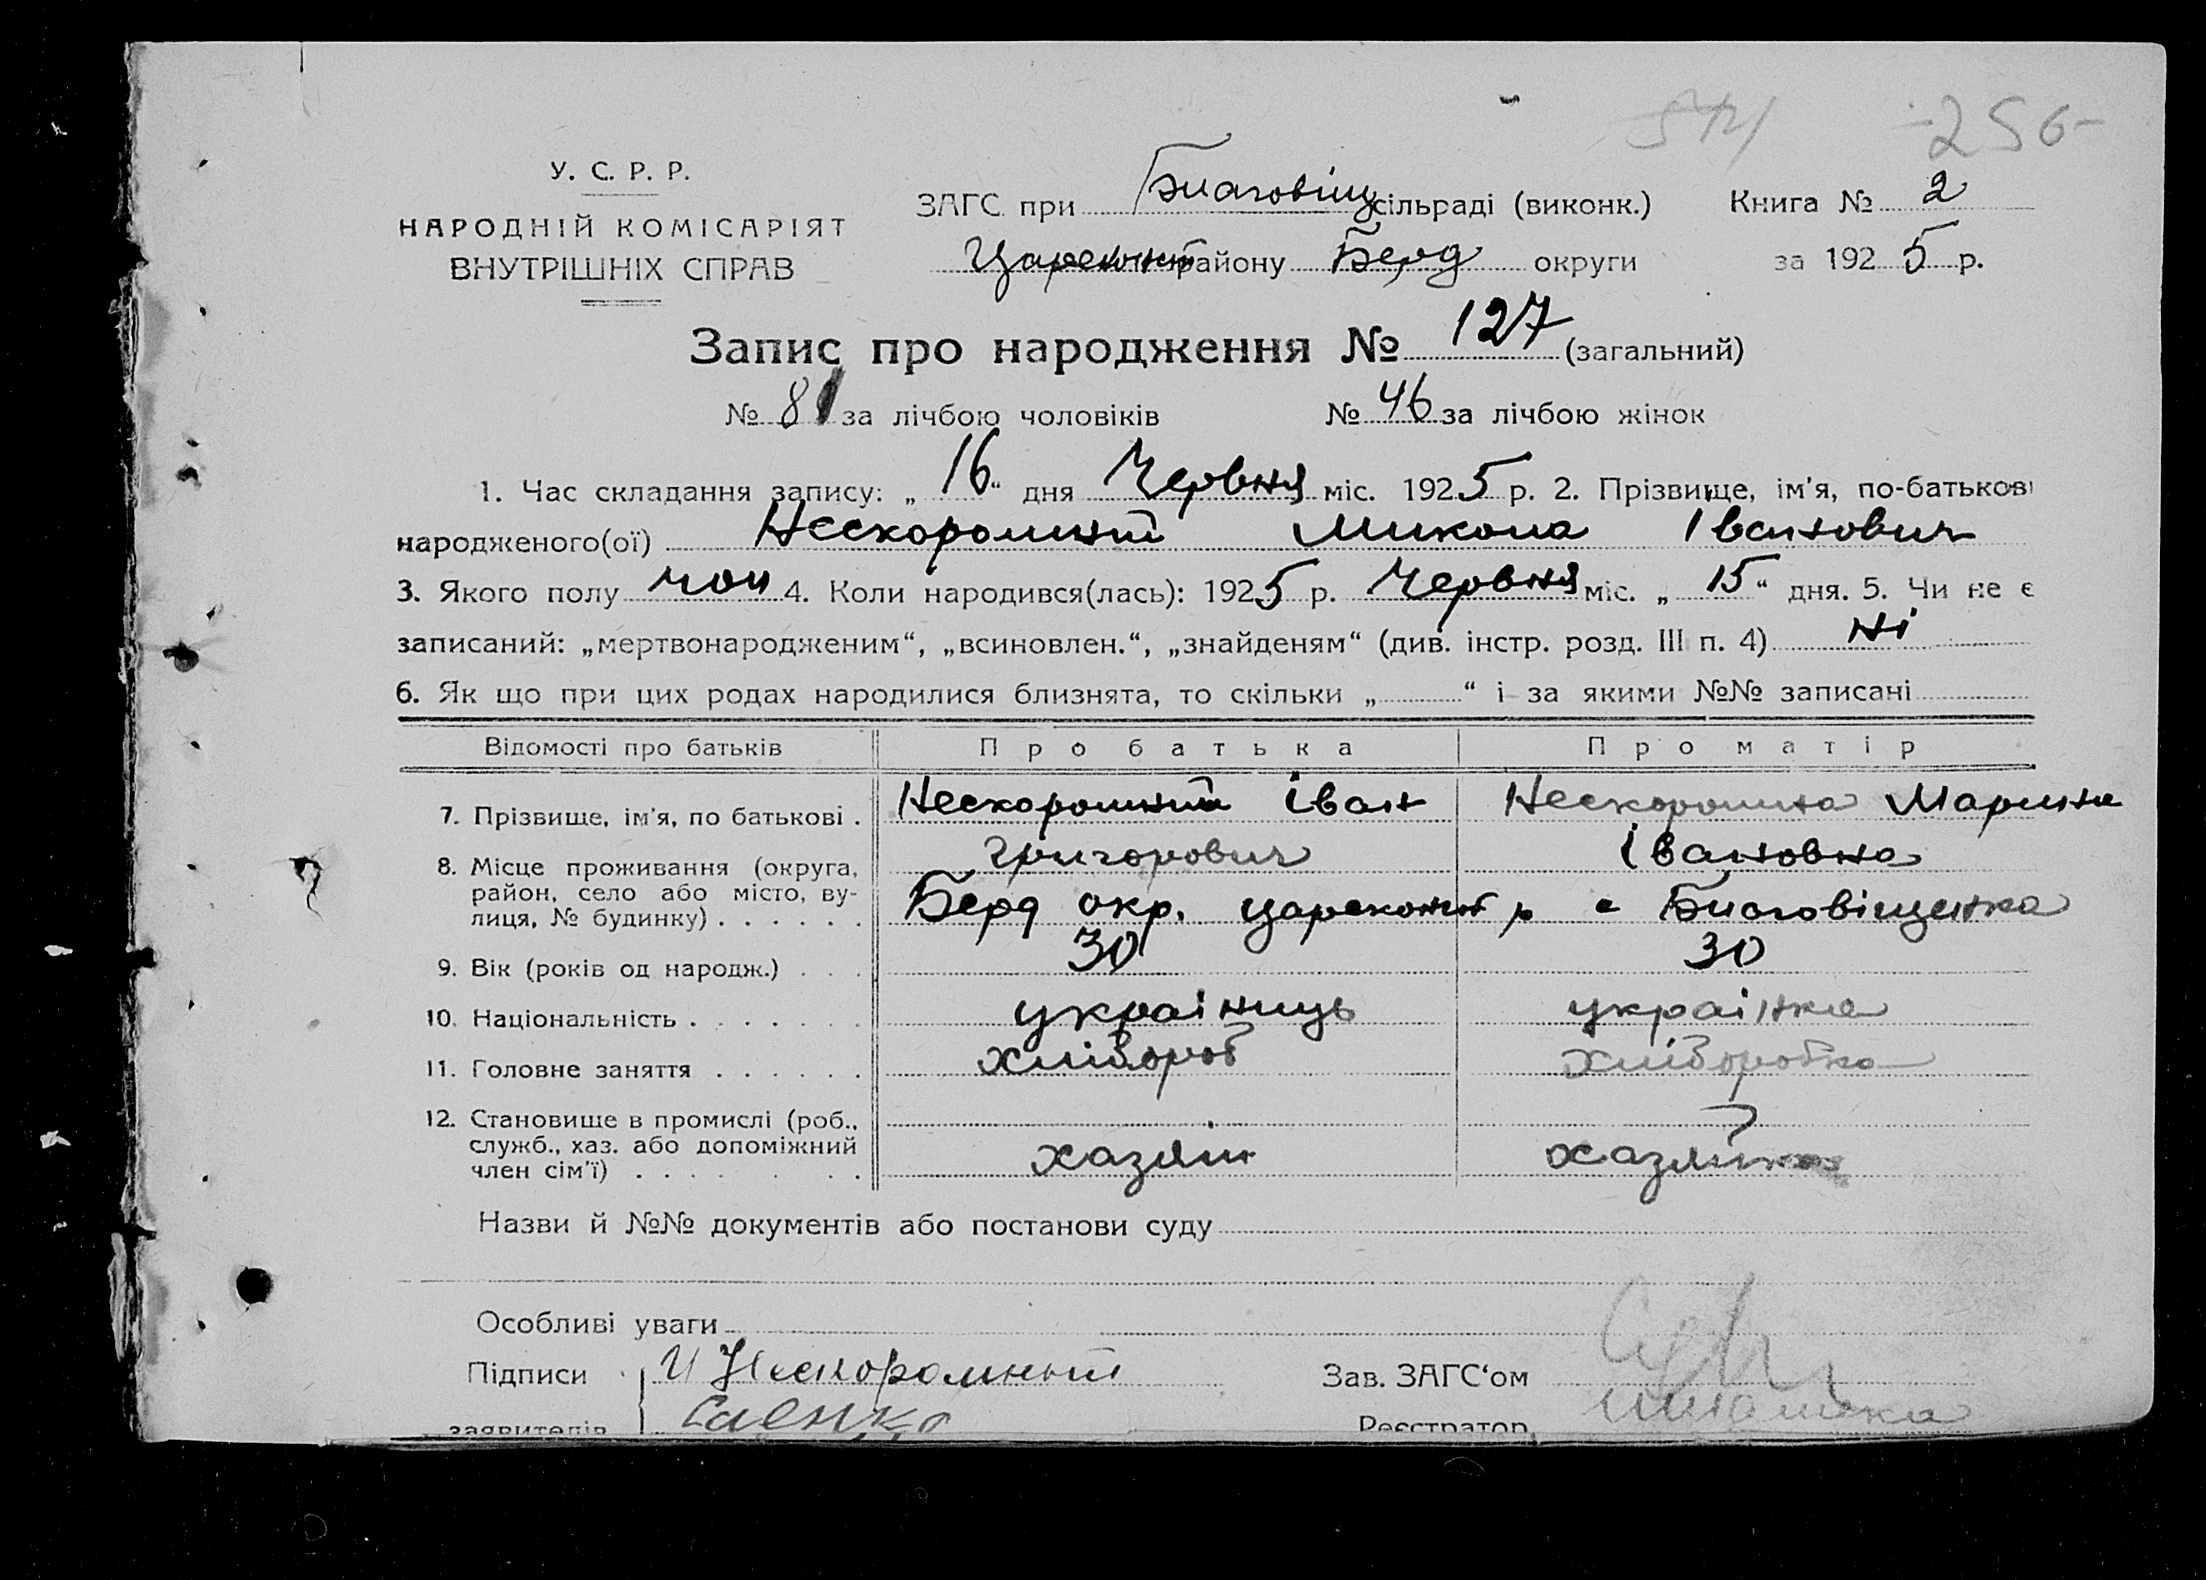 -256-
У. С. Р. Р.
НАРОДНІЙ КОМІСАРІЯТ
ВНУТРІШНІХ СПРАВ
ЗАГС при Благовіщ сільраді (виконк.) Книга № 2
Царекон району Берд округи за 1925 р.
Запис про народження № 127 (загальний)
№ 81 за лічбою чоловіків № 46 за лічбою жінок
1. Час складання запису: „16“ дня Червня міс. 1925 р. 2. Прізвище, ім'я, по-батькові
народженого(ої) Нескоромний Микола Іванович
3. Якого полу чол 4. Коли народився(лась): 1925 р. Червня міс. „15“ дня. 5. Чи не є
записаний: „мертвонародженим“, „всиновлен.“, „знайденям“ (див. інстр. розд. III п. 4) ні
6. Як що при цих родах народилися близнята, то скільки „ “ і за якими №№ записані
Відомості про батьків Про батька Про матір
7. Прізвище, ім'я, по батькові . Нескоромний Іван Нескоромна Марина
Григорович Івановна
8. Місце проживання (округа,
район, село або місто, ву-
лиця, № будинку) . . . . . . Берд окр. Цареконст р с Благовіщенка
9. Вік (років од народж.) . . . 30 30
10. Національність . . . . . . . україниць українка
11. Головне заняття . . . . . . хлібороб хліборобка
12. Становище в промислі (роб.,
служб., хаз. або допоміжний
член сім'ї) . . . . . . . хазяін хазяйка
Назви й №№ документів або постанови суду
Особливі уваги
Підписи И Нескоромный Зав. ЗАГС'ом
заявителів Саенко Реєстратор